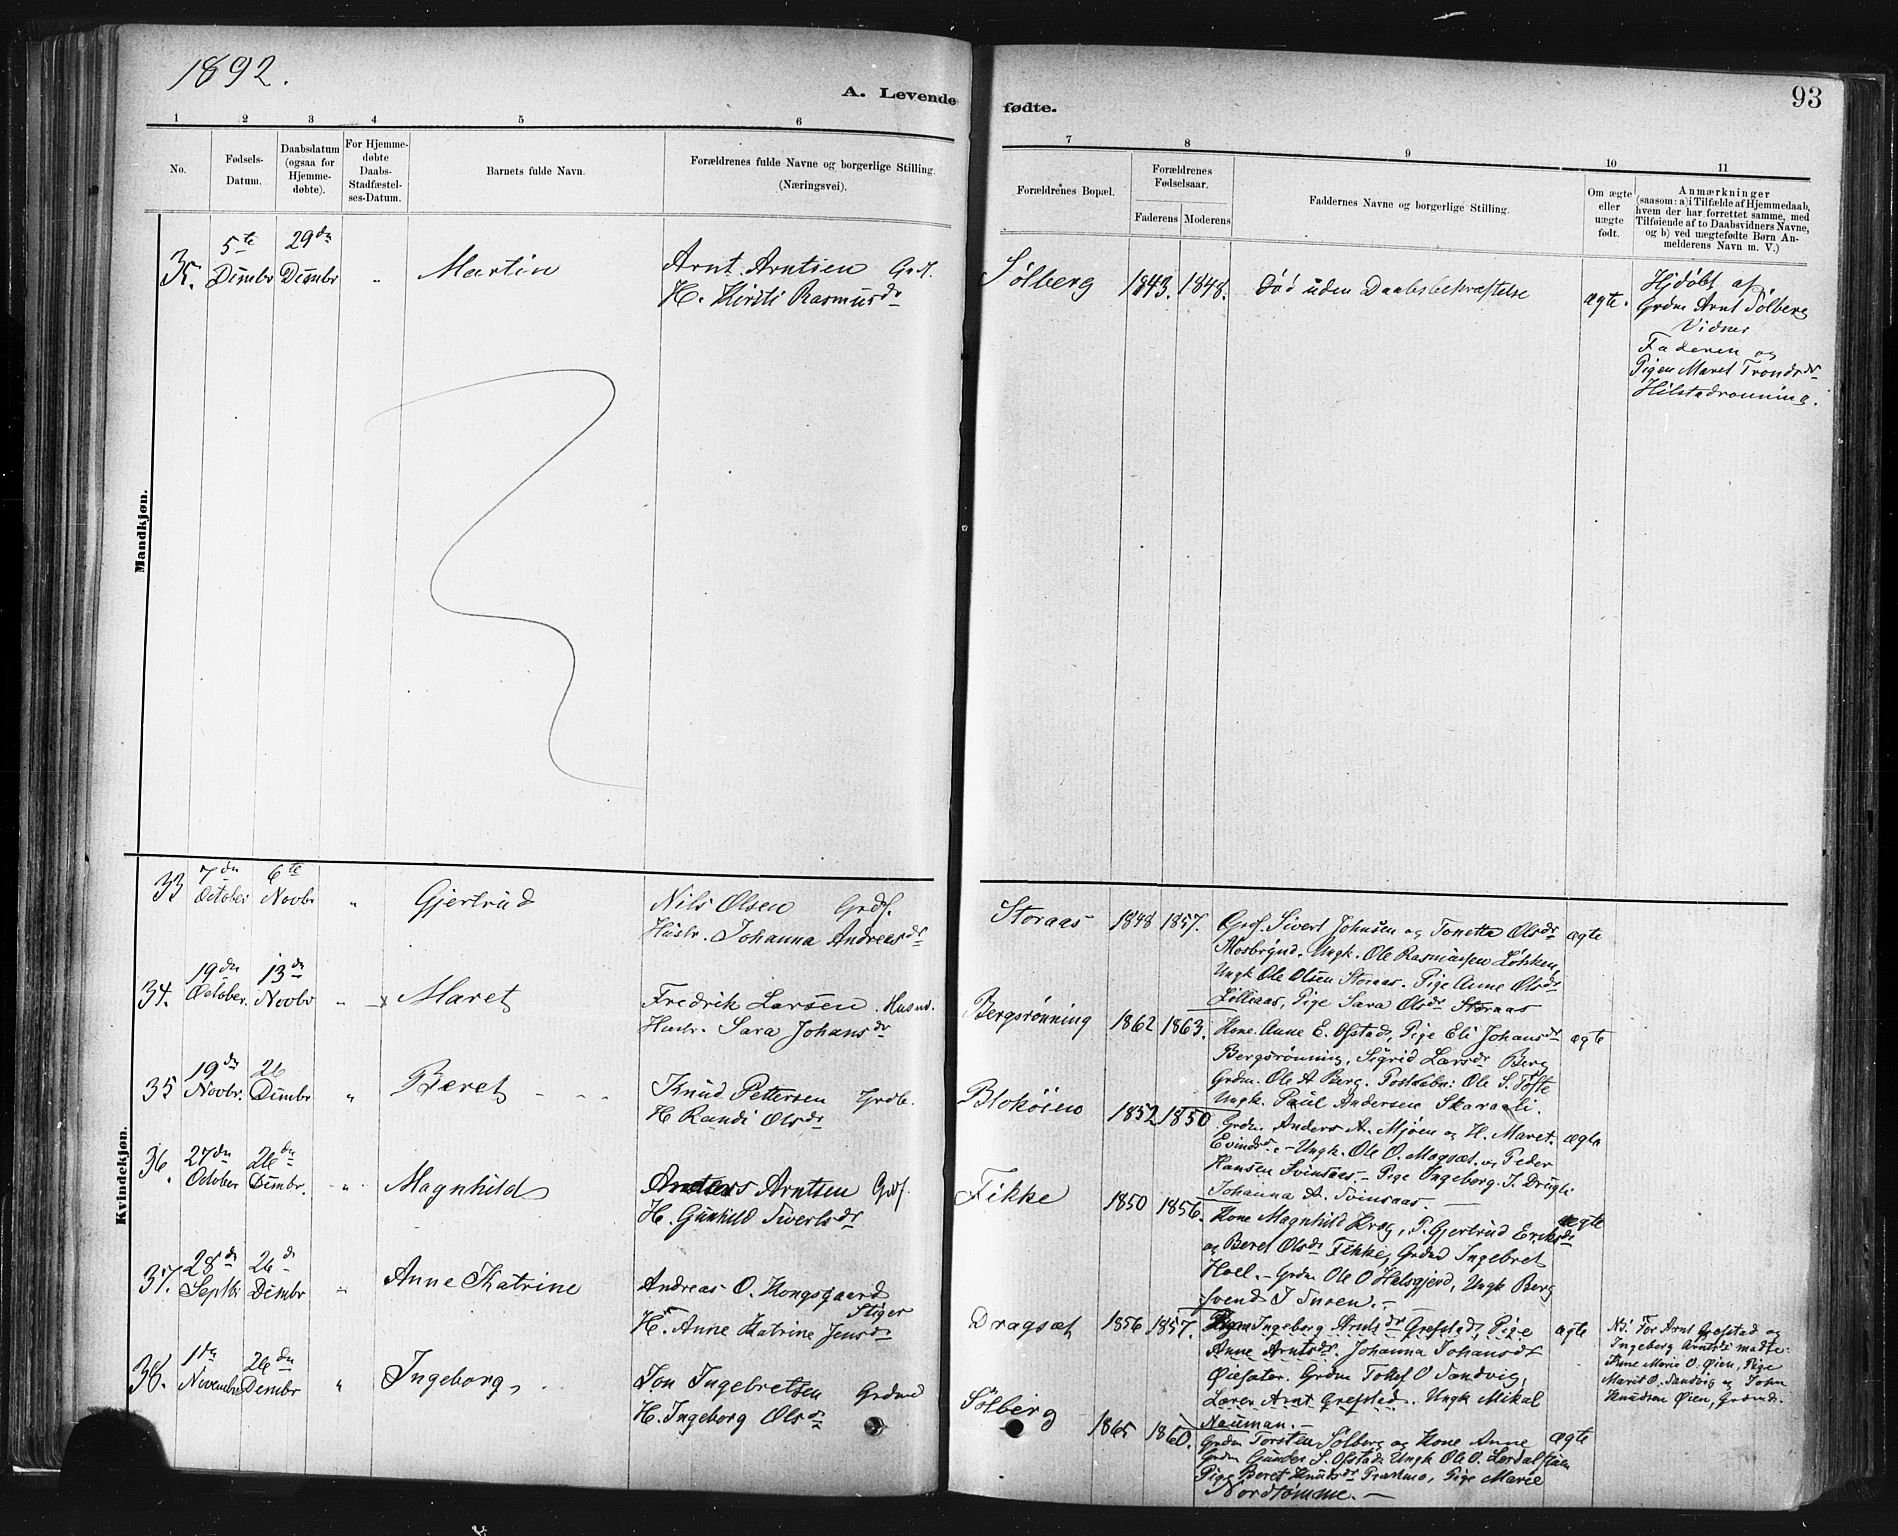 1892.
A. Levende fødte.
93
1 2 3 4 5 6 7 8 9 10 11
No.
Fødsels-
Datum.
Daabsdatum
(ogsaa for
Hjemme-
døbte).
For Hjemme-
døbte
Daabs-
Stadfæstel-
ses-Datum.
Barnets fulde Navn.
Forældrenes fulde Navne og borgerlige Stilling.
(Næringsvei).
Forældrenes Bopæl.
Forældrenes
Fødselsaar.
Faderens Moderens
Faddernes Navne og borgerlige Stilling.
Om ægte
eller
uægte
født.
Anmærkninger
(saasom: a) i Tilfælde af Hjemmedaab,
hvem der har forrettet samme, med
Tilføiende af to Daabsvidners Navne,
og b) ved uægtefødte Børn An-
melderens Navn m. V.)
Mandkjøn.
35. 5te Dimbr 29dn Dimbr " Martin
Arnt Arntsen Grdf.
H. Kirsti Rasmusdr
Solberg 1843. 1848. Død uden Daabsbekræftelse ægte.
Hjdøbt af
Grdm Arnt Solberg
Vidner
Faderen og
Pigen Maret Trondsdr
Kvindekjøn.
33 7dn October 6te Novbr " Gjertrud
Nils Olsen Grdf.
Hustr. Johanna Andreasdr
Storaas 1848 1857.
Grdf. Sivert Johnsen og Tonetta Olsdr
Mosbrynd. Ungk. Ole Rasmussen Løkken,
Ungk Ole Olsen Storaas. Pige Anne Olsdr
Lilliaas, Pige Sara Olsdr Storaas
ægte
34. 19dn October. 13dn Novbr " x Maret
Fredrik Larsen. Husmd.
Hustr. Sara Johansdr
Bergsrønning 1862 1863.
Kone Anne E. Ofstad, Pige Eli Johansdr
Bergsrønning, Sigrid Larsdr Berg
Grdm. Ole A Berg. Postaabn: Ole S. Tofte
Ungk. Paul Andersen Skaraali.
ægte
35 19dn Novbr. 26 Dimbr " Beret
Knud Pettersen Grdbr.
H Randi Olsdr
Blokøien 1852 1850
Grdm. Anders A. Mjøen og H. Maret
Evindsdr. - Ungk. Ole O. Mogsæt og Peder
Hansen Svinsaas - Pige Ingeborg J. Drugli
Johanna A. Svinsaas. -
ægte
36. 27dn October 26dn Dimbr. " Magnhild
Anders Arntsen Grdf.
H. Gunhild Sivertsdr
Fikke 1850 1856.
Kone Magnhild Krog, P. Gjertrud Eriksdr
og Beret Olsdr Fikke, Grdmd Ingebret
Hoel. - Grdm Ole O Helsgjerd, Ungk Berg
Svend J Snoen. -
ægte
37. 28dn Septbr 26dn Dimbr " Anne Katrine
Andreas O. Kongsgaard
Stiger
H. Anne Katrine Jensdr
Dragsæt 1856 1857.
Ingeborg Arntsdr Grefstad, Pige
Anne Arntsdr. Johanna Johansdr
Øiesæter. Grdm Tolef O Sandvig,
Lærer Arnt Grefstad. Ungk Mikal
Neuman. -
ægte
NB. For Arnt Grefstad og
Ingeborg Arntsdr mødte:
Anne Marie O. Øien, Pige
Marit O. Sandvig og John
Knudsen Øien, Grdmd.
38. 1dn November 26dn Dembr " Ingeborg
Jon Ingebretsen Grdmd
H. Ingeborg Olsdr
Solberg 1865 1860.
Grdm Torsten Solberg og Kone Anne
Grdm Gunder S. Ofstad Ungk Ole O. Lerdalslien
Pige Beret Knudsdr Præstmo, Pige Marie
Nordtømme. -
ægte